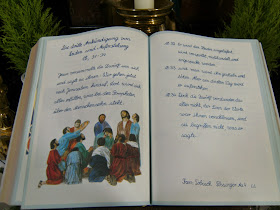 Die dritte Ankündigung von
Leiden und Auferstehung
31-34
Jesus versammelte die Zwölf um sich
und sagte zu ihnen: Wir gehen jetzt
nach Jerusalem hinauf; dort wird sich
alles erfüllen, was bei den Propheten
über den Menschensohn steht.
32 Er wird den Heiden ausgeliefert,
wird verspottet, misshandelt und
angespuckt werden.
33 und man wird ihn geißeln und
töten. Aber am dritten Tag wird
er auferstehen.
34 Doch die Zwölf verstanden das
alles nicht; der Sinn der Worte
war ihnen verschlossen, und
sie begriffen nicht, was er
sagte.